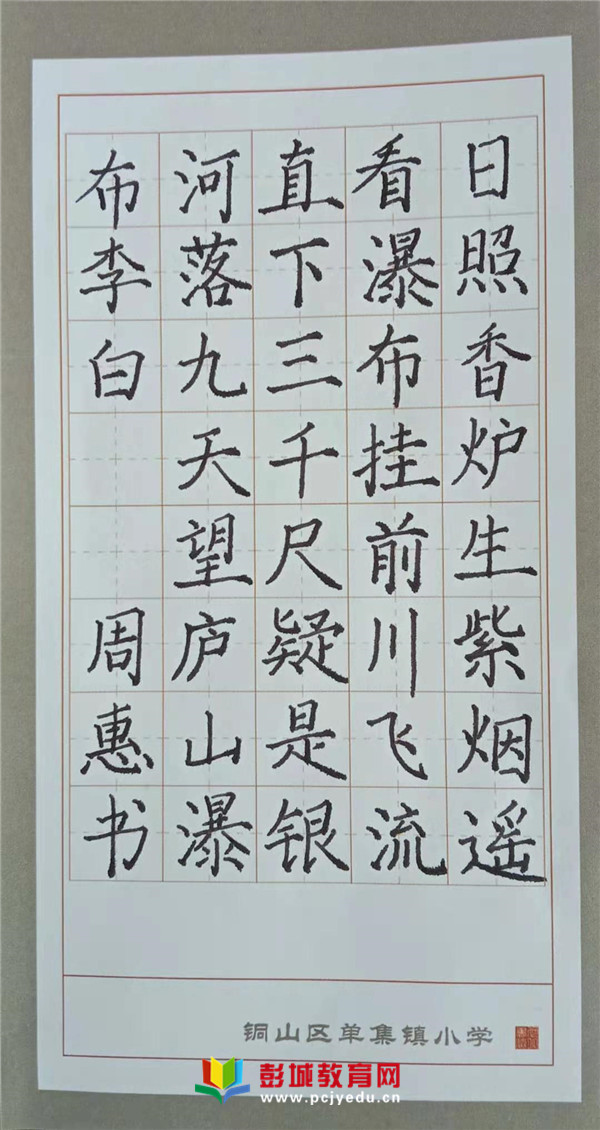 日照香炉生紫烟遥
看瀑布挂前川飞流
直下三千尺疑是银
河落九天望庐山瀑
布李白 周惠书
铜山区单集镇小学
彭城教育网
www.pcjyedu.cn